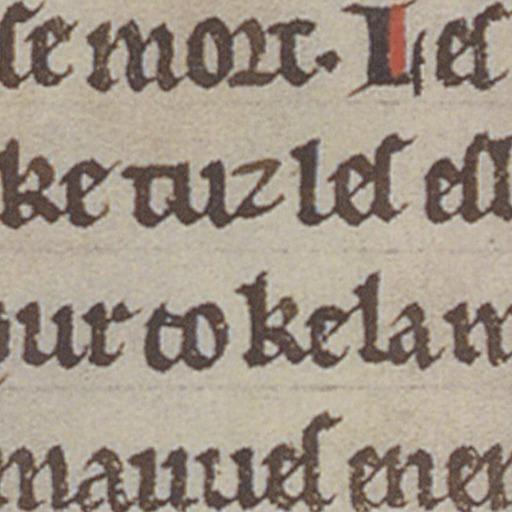 se mort. Les
ke tuz les ell
ur co ke la m
mauues enem